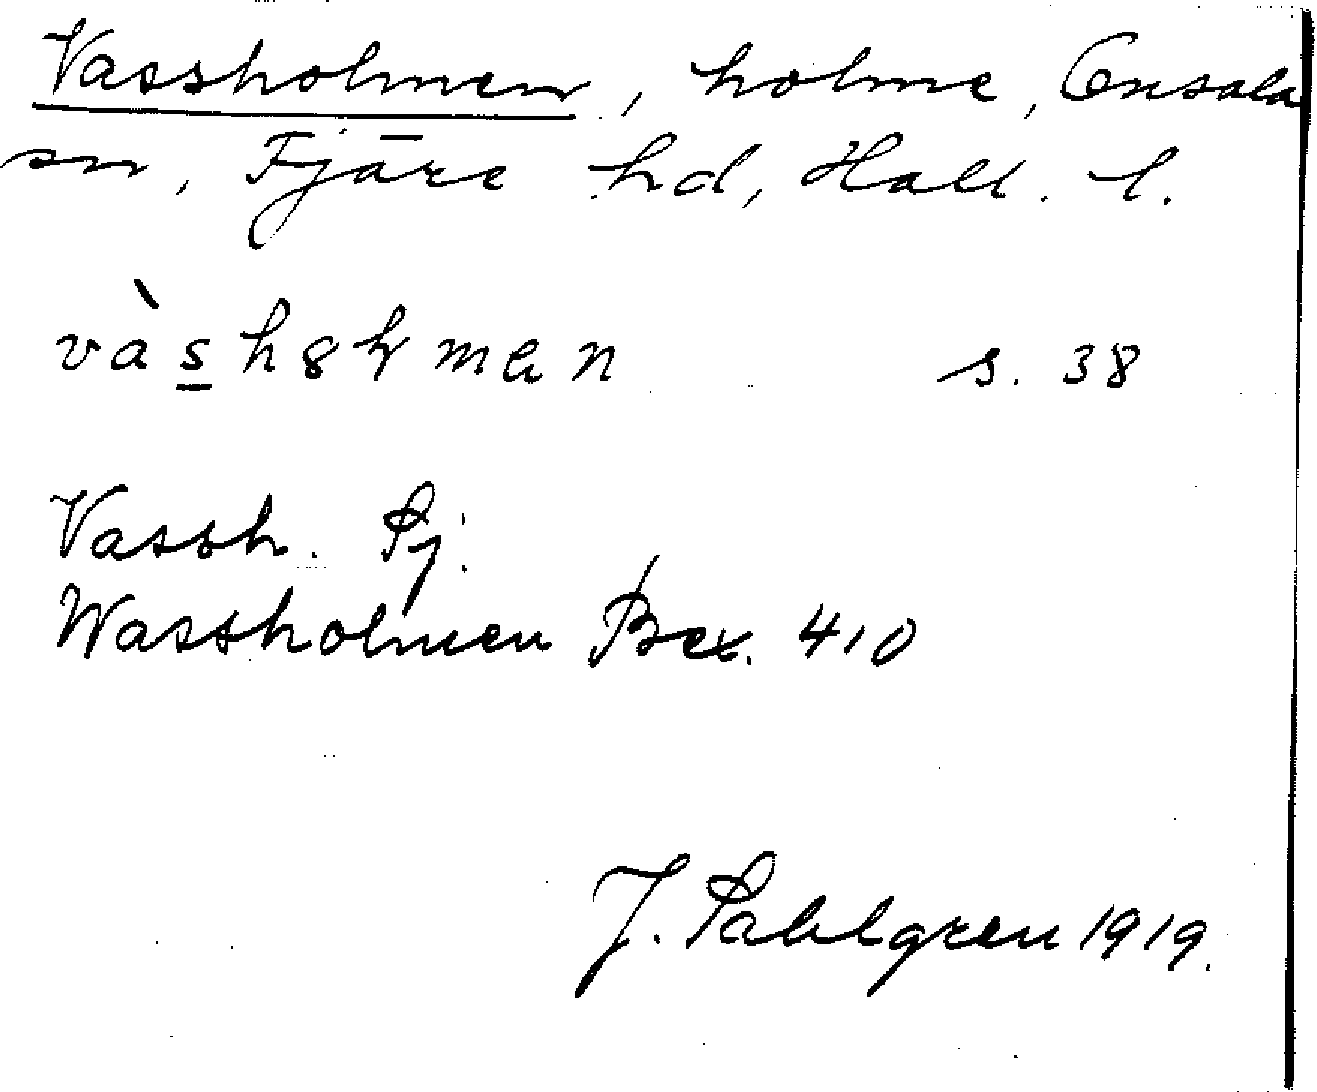 Vassholmen, holme, Onsala
sn, Fjäre hd, Hall. l.
s. 38
Vassh. Pj.
Wassholmen Bex. 410
J. Sahlgren 1919.